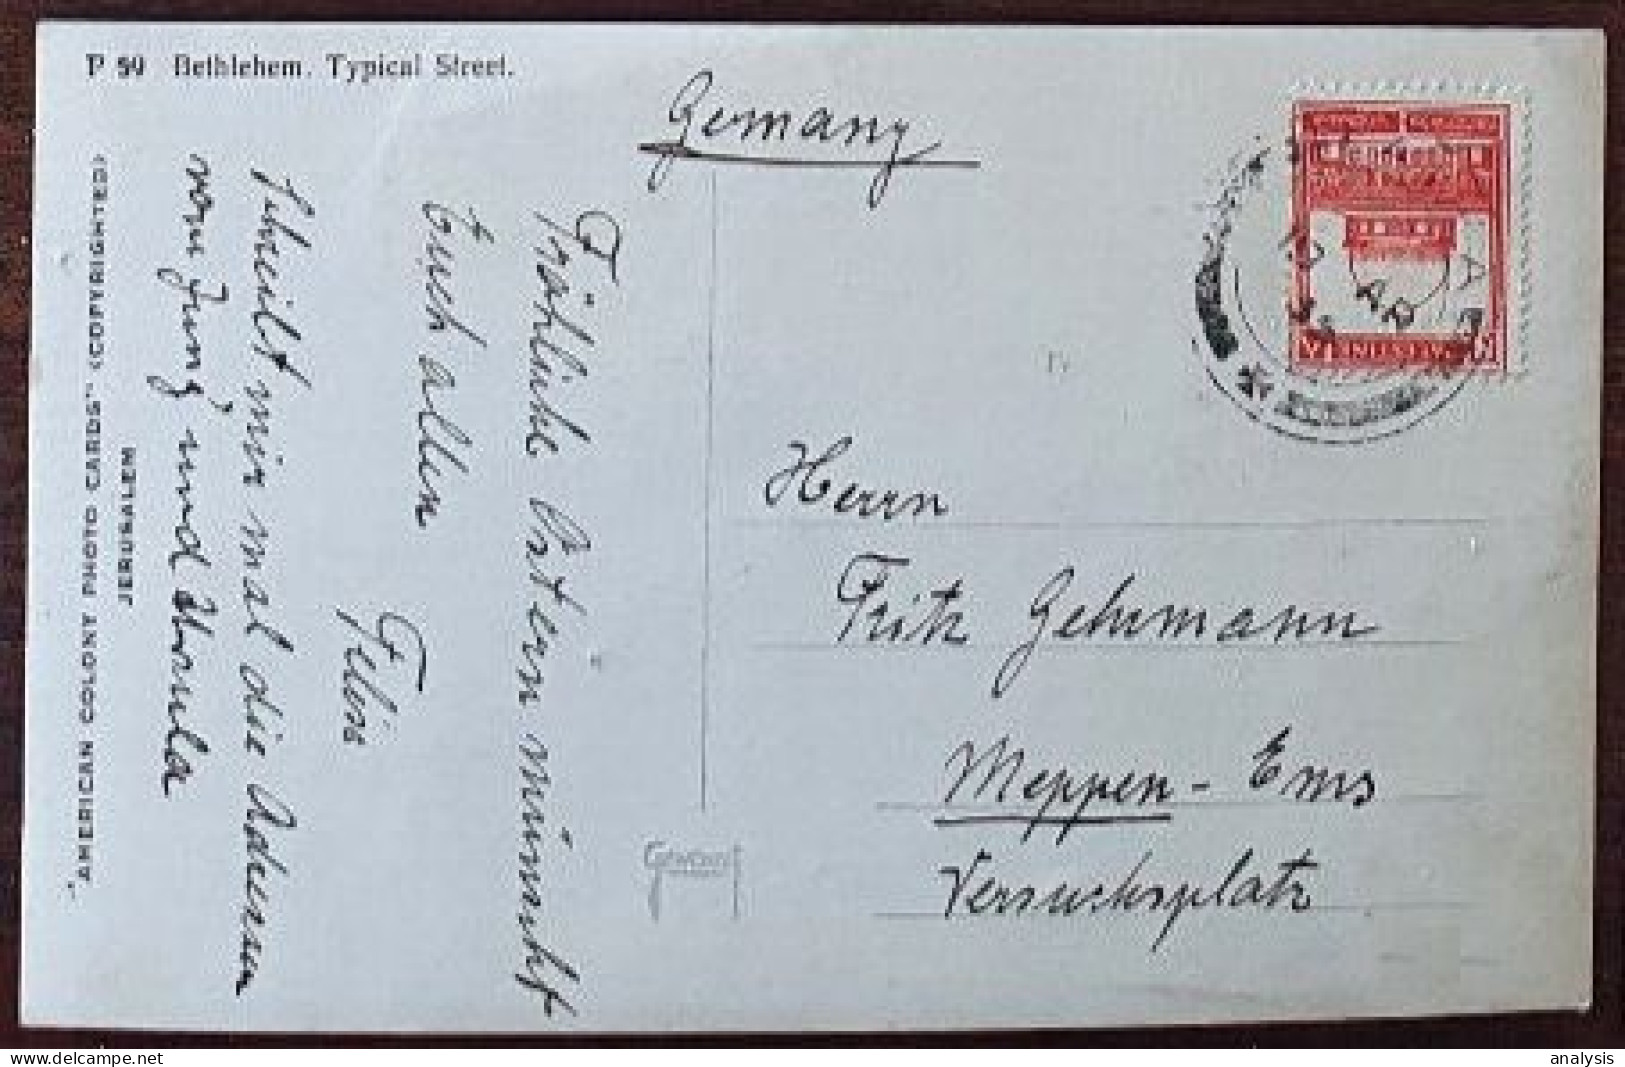 P 59 Bethlehem. Typical Street.
"AMERICAN COLONY PHOTO CARDS" (COPYRIGHTED)
JERUSALEM
Germany
Fröhliche Ostern wünscht
Euch allen
Felix
Schreibt mir mal die Adressen
vom Jung und Ursula
Herrn
Fritz Gehrmann
Meppen - Ems
Versuchsplatz
GEVAERT
AP
analysis
delcampe.net